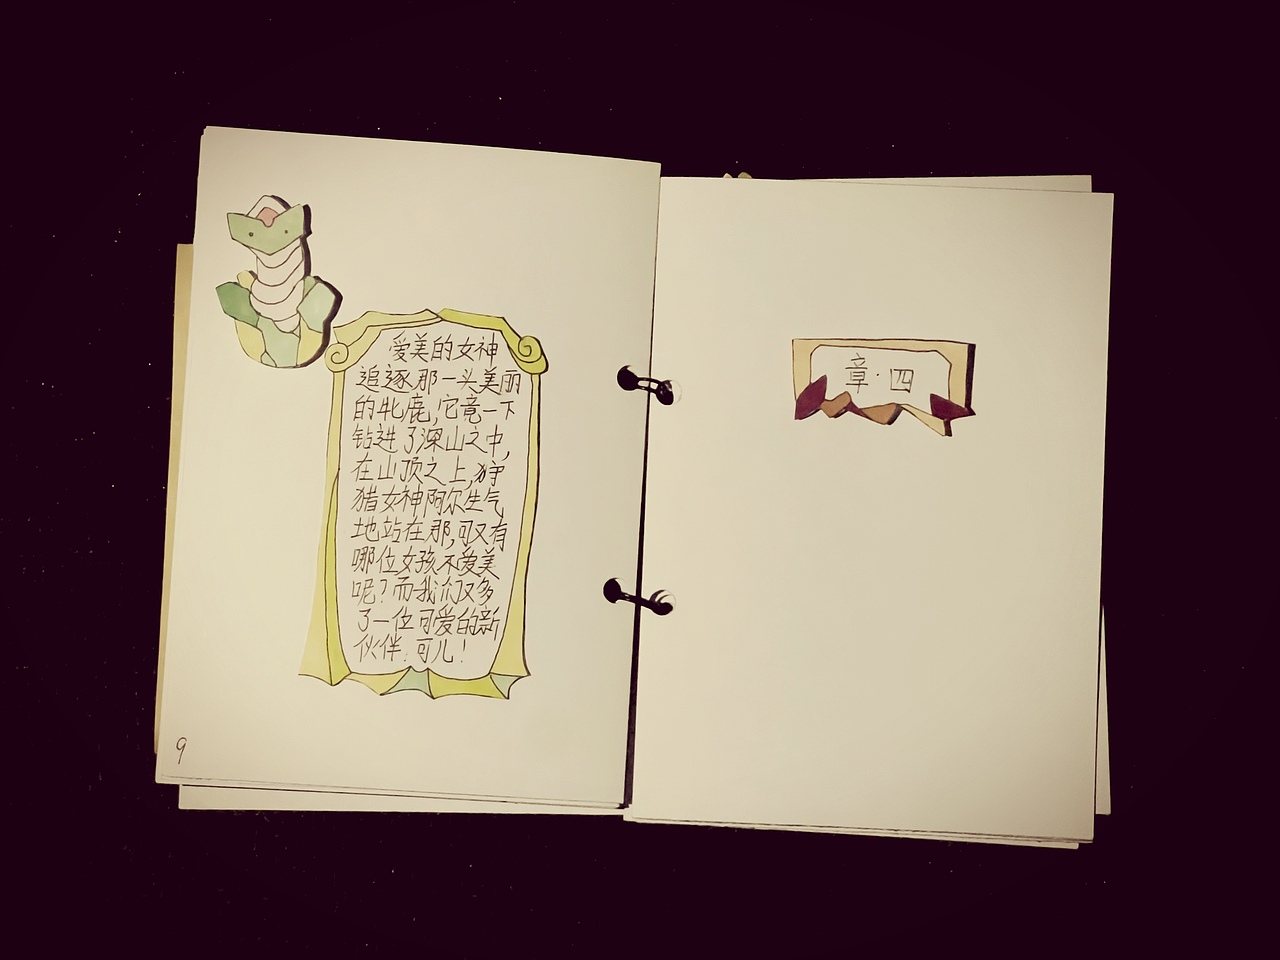 爱美的女神
追逐那一头美丽
的牝鹿,它竟一下
钻进了深山之中,
在山顶之上,狩
猎女神阿尔生气
地站在那,可又有
哪位女孩不爱美
呢?而我们又多
了一位可爱的新
伙伴:可儿!
9
章·四